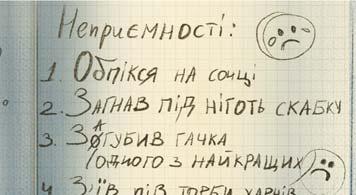 Неприємності:
1. Обпікся на сонці
2. Загнав під ніготь скабку
3. Загубив гачка
/одного з найкращих/
4. З'їв пів торби харчів